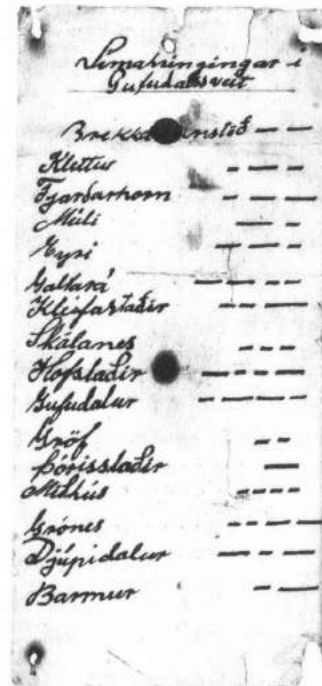 Símahringingar í
Gufudalssveit
Klettur
Fjarðarhorn
Múli
Eyri
Galtará
Kleifastaðir
Skálanes
Hofstaðir
Gufudalur
Gröf
Þórisstaðir
Miðhús
Grónes
Djúpidalur
Barmur